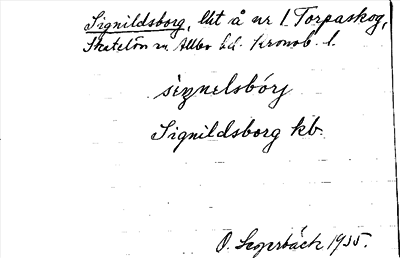 Signildsborg, lht å nr 1 Torpaskog,
Skatelöv sn Allbo hd. Kronob. l.
siŋnelsbórj
Signildsborg kb.
O. Segerbäck 1935.